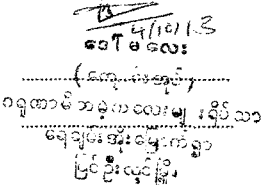 4/10/13
ဒေါ်မလေး
(ကျောင်းအုပ်)
ဂရုဏာမိဘမဲ့ကလေးများရိပ်သာ
ရေချမ်းအိုးမြောက်ရွာ
ပြင်ဦးလွင်မြို့